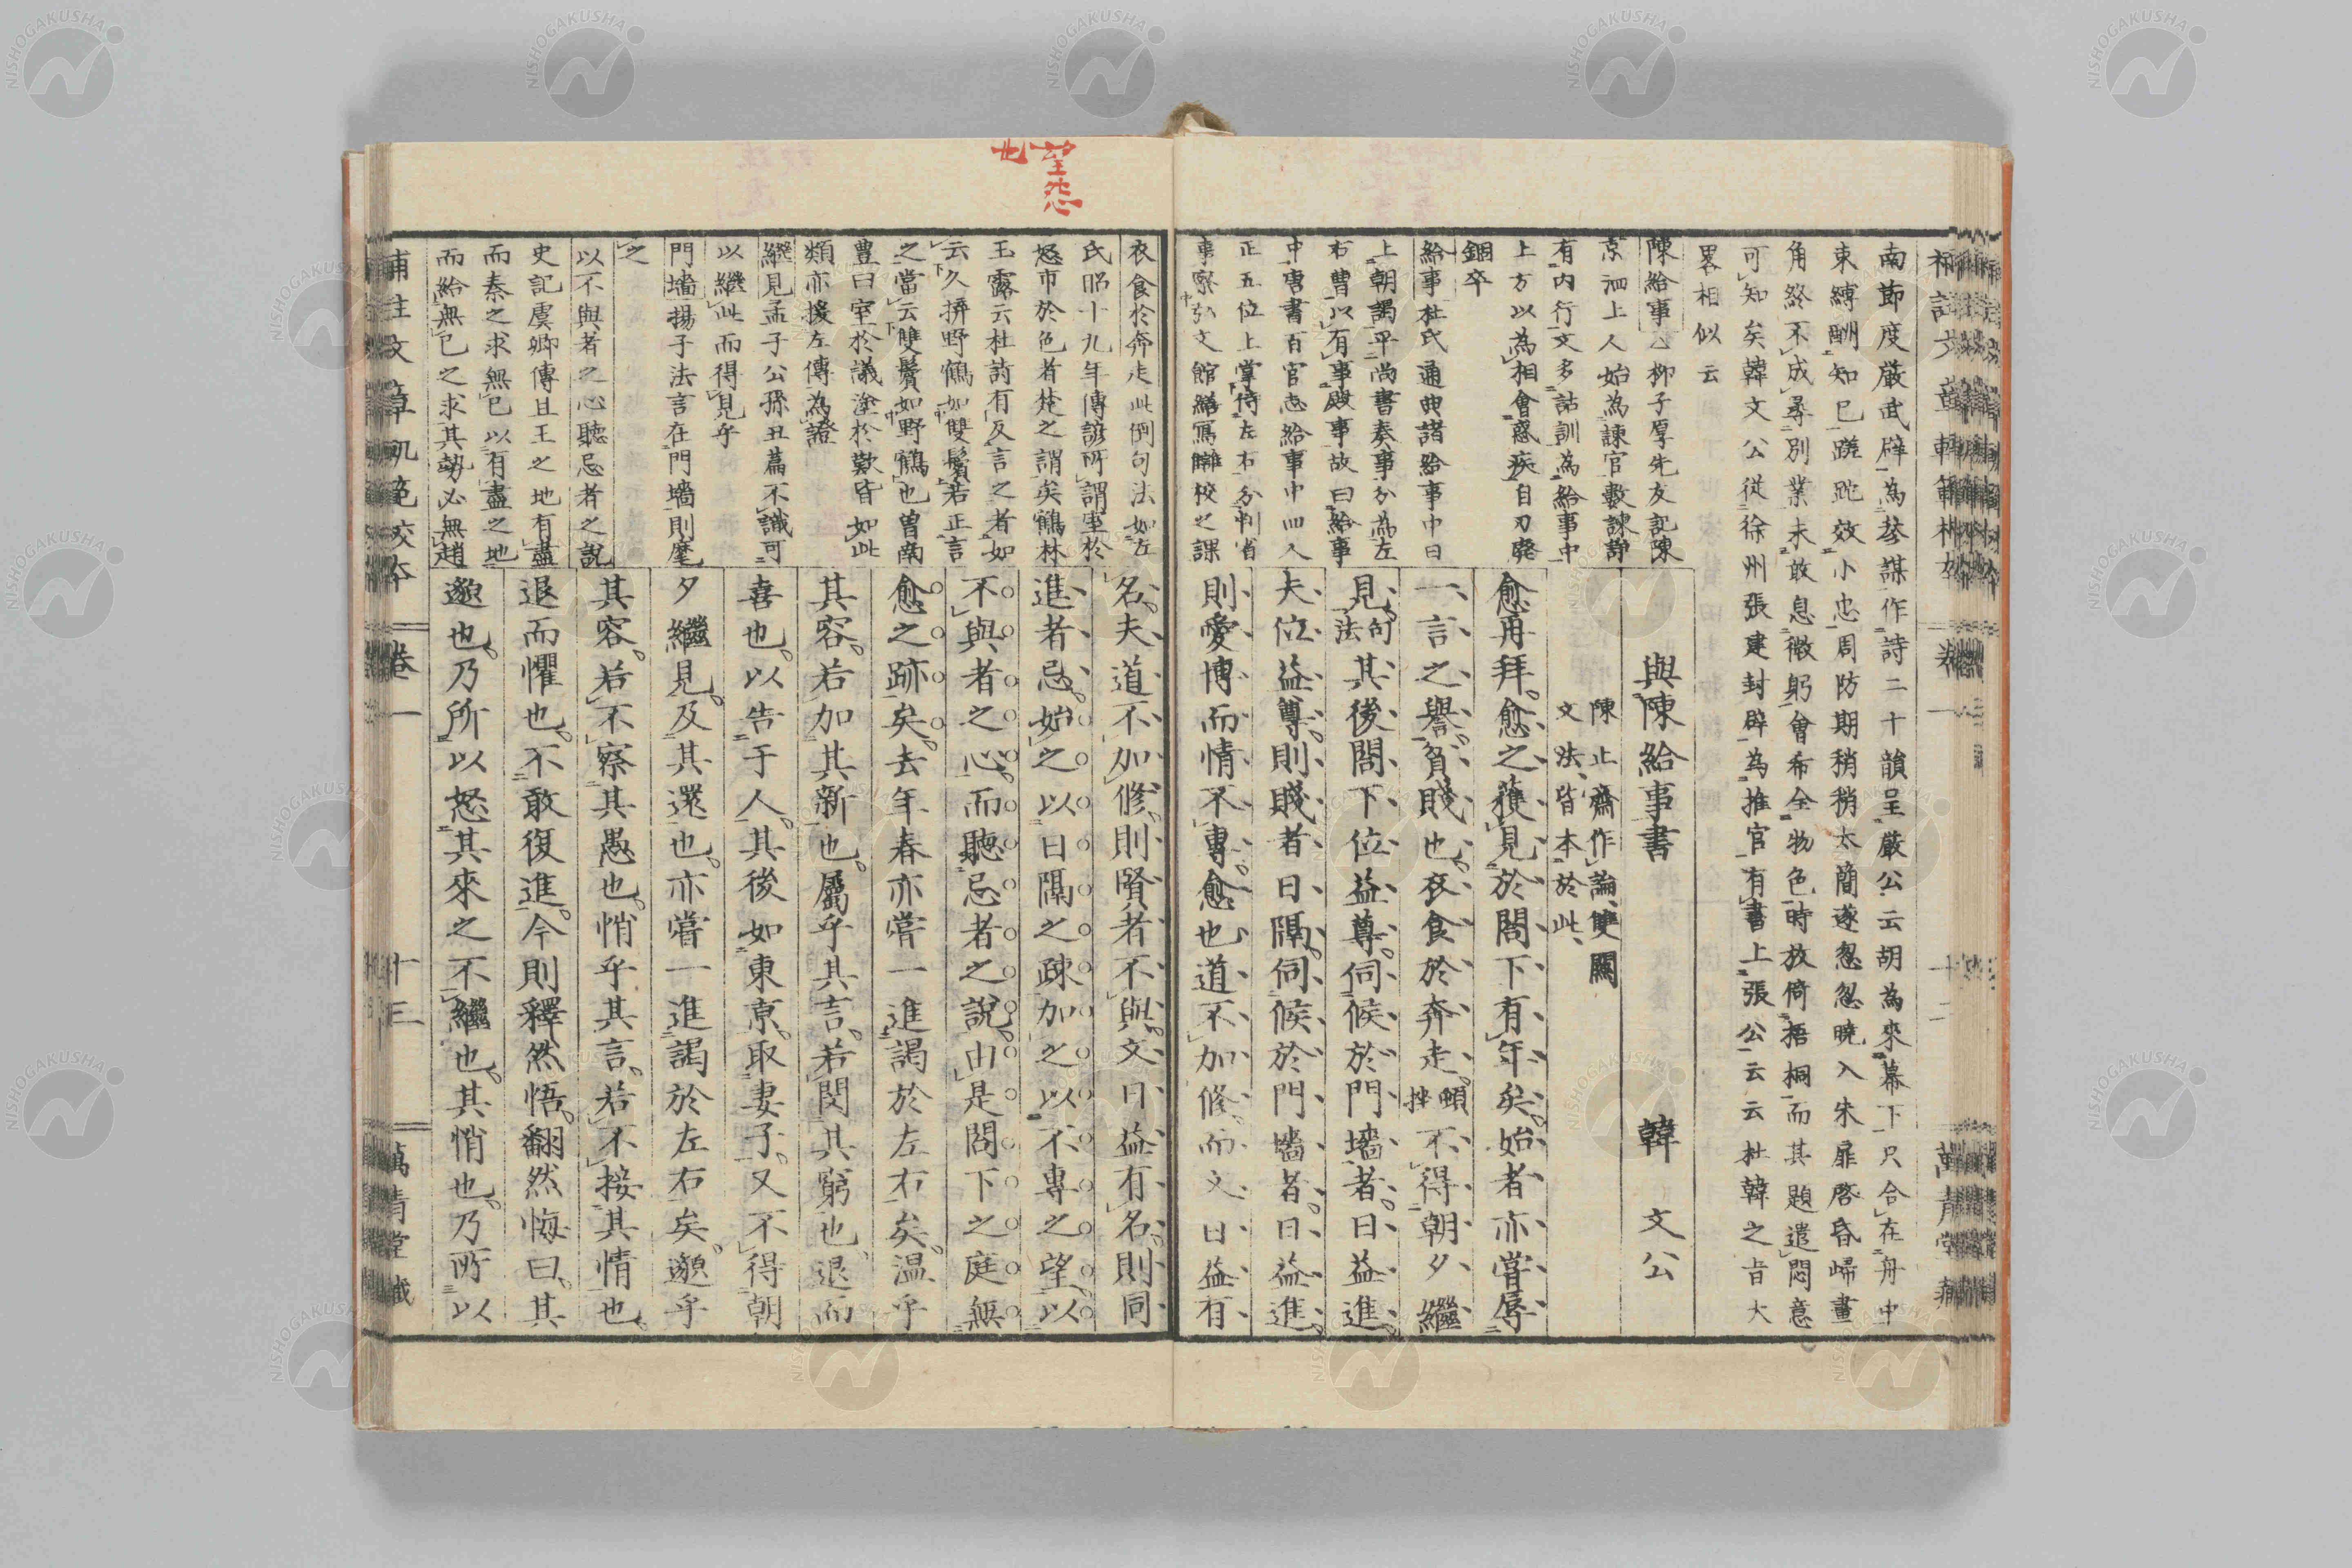 南節度嚴武辟為參謀作詩二十韻呈嚴公云胡為來幕下只合在舟中
東縛酬知已蹉跎效小忠周防期稍稍太簡遂忽忽曉入朱扉啓昏歸畫
角終不成尋別業未敢息微躬會希全物色時放倚梧桐而其題遣悶意
可知矣韓文公從徐州張建封辟為推官有書上張公云云杜韓之旨大
畧相似云
陳給事 柳子厚先友記陳
京泗上人始為諫官數諫諍
有内行文多詁訓為給事中
上方以為相會惑疾自刃發
錮卒
給事杜氏通典諸給事中日
上朝謁平尚書奏事分為左
右曹以有事殿事故曰給事
中唐書百官志給事中四人
正五位上掌侍左右分判省
事察弘文館繕寫讎校之課
與陳給事書 韓文公
陳止齋作論雙關
文法皆本於此
愈再拜愈之獲見於閤下有年矣始者亦嘗辱
一言之譽貧賤也衣食於奔走頓挫不得朝夕繼
見句法其後閤下位益尊伺候於門墻者日益進
夫位益尊則賤者日隔伺候於門墻者日益進
則愛博而情不專愈也道不加修而文日益有
衣食於奔走此倒句法如左
氏昭十九年傳諺所謂室於
怒市於色者楚之謂矣鶴林
玉露云杜詩有反言之者如
云久拚野鶴如雙鬢若正言
之當云雙鬢如野鶴也曽南
豊曰室於議塗於歎皆如此
類亦援左傳為證
繼見孟子公孫丑篇不識可
以繼此而得見乎
門墻揚子法言在門墻則麾
之
以不與者之心聽忌者之說
史記虞卿傳且王之地有盡
而秦之求無已以有盡之地
而給無已之求其勢必無趙
名夫道不加修則賢者不與文日益有名則同
進者忌始之以日隔之疎加之以不專之望以
不與者之心而聽忌者之說由是閤下之庭無
愈之跡矣去年春亦嘗一進謁於左右矣温乎
其容若加其新也屬乎其言若閔其窮也退而
喜也以告于人其後如東京取妻子又不得朝
夕繼見及其還也亦嘗一進謁於左右矣邈乎
其容若不察其愚也悄乎其言若不接其情也
退而懼也不敢復進今則釋然悟翻然悔曰其
邈也乃所以怒其來之不繼也其悄也乃所以
補註文章軌範校本 卷一 十三 萬青堂藏
望怨
也
NISHOGAKUSHA